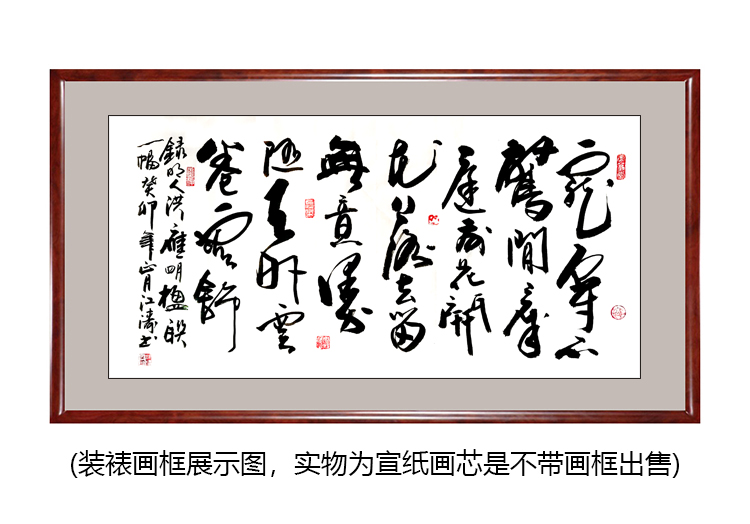 寵辱不
驚閒看
庭前花開
花落去留
無意漫
随天外雲
卷雲舒
録明人洪應明楹联
一幅癸卯年正月江濤书
(装裱画框展示图，实物为宣纸画芯是不带画框出售)